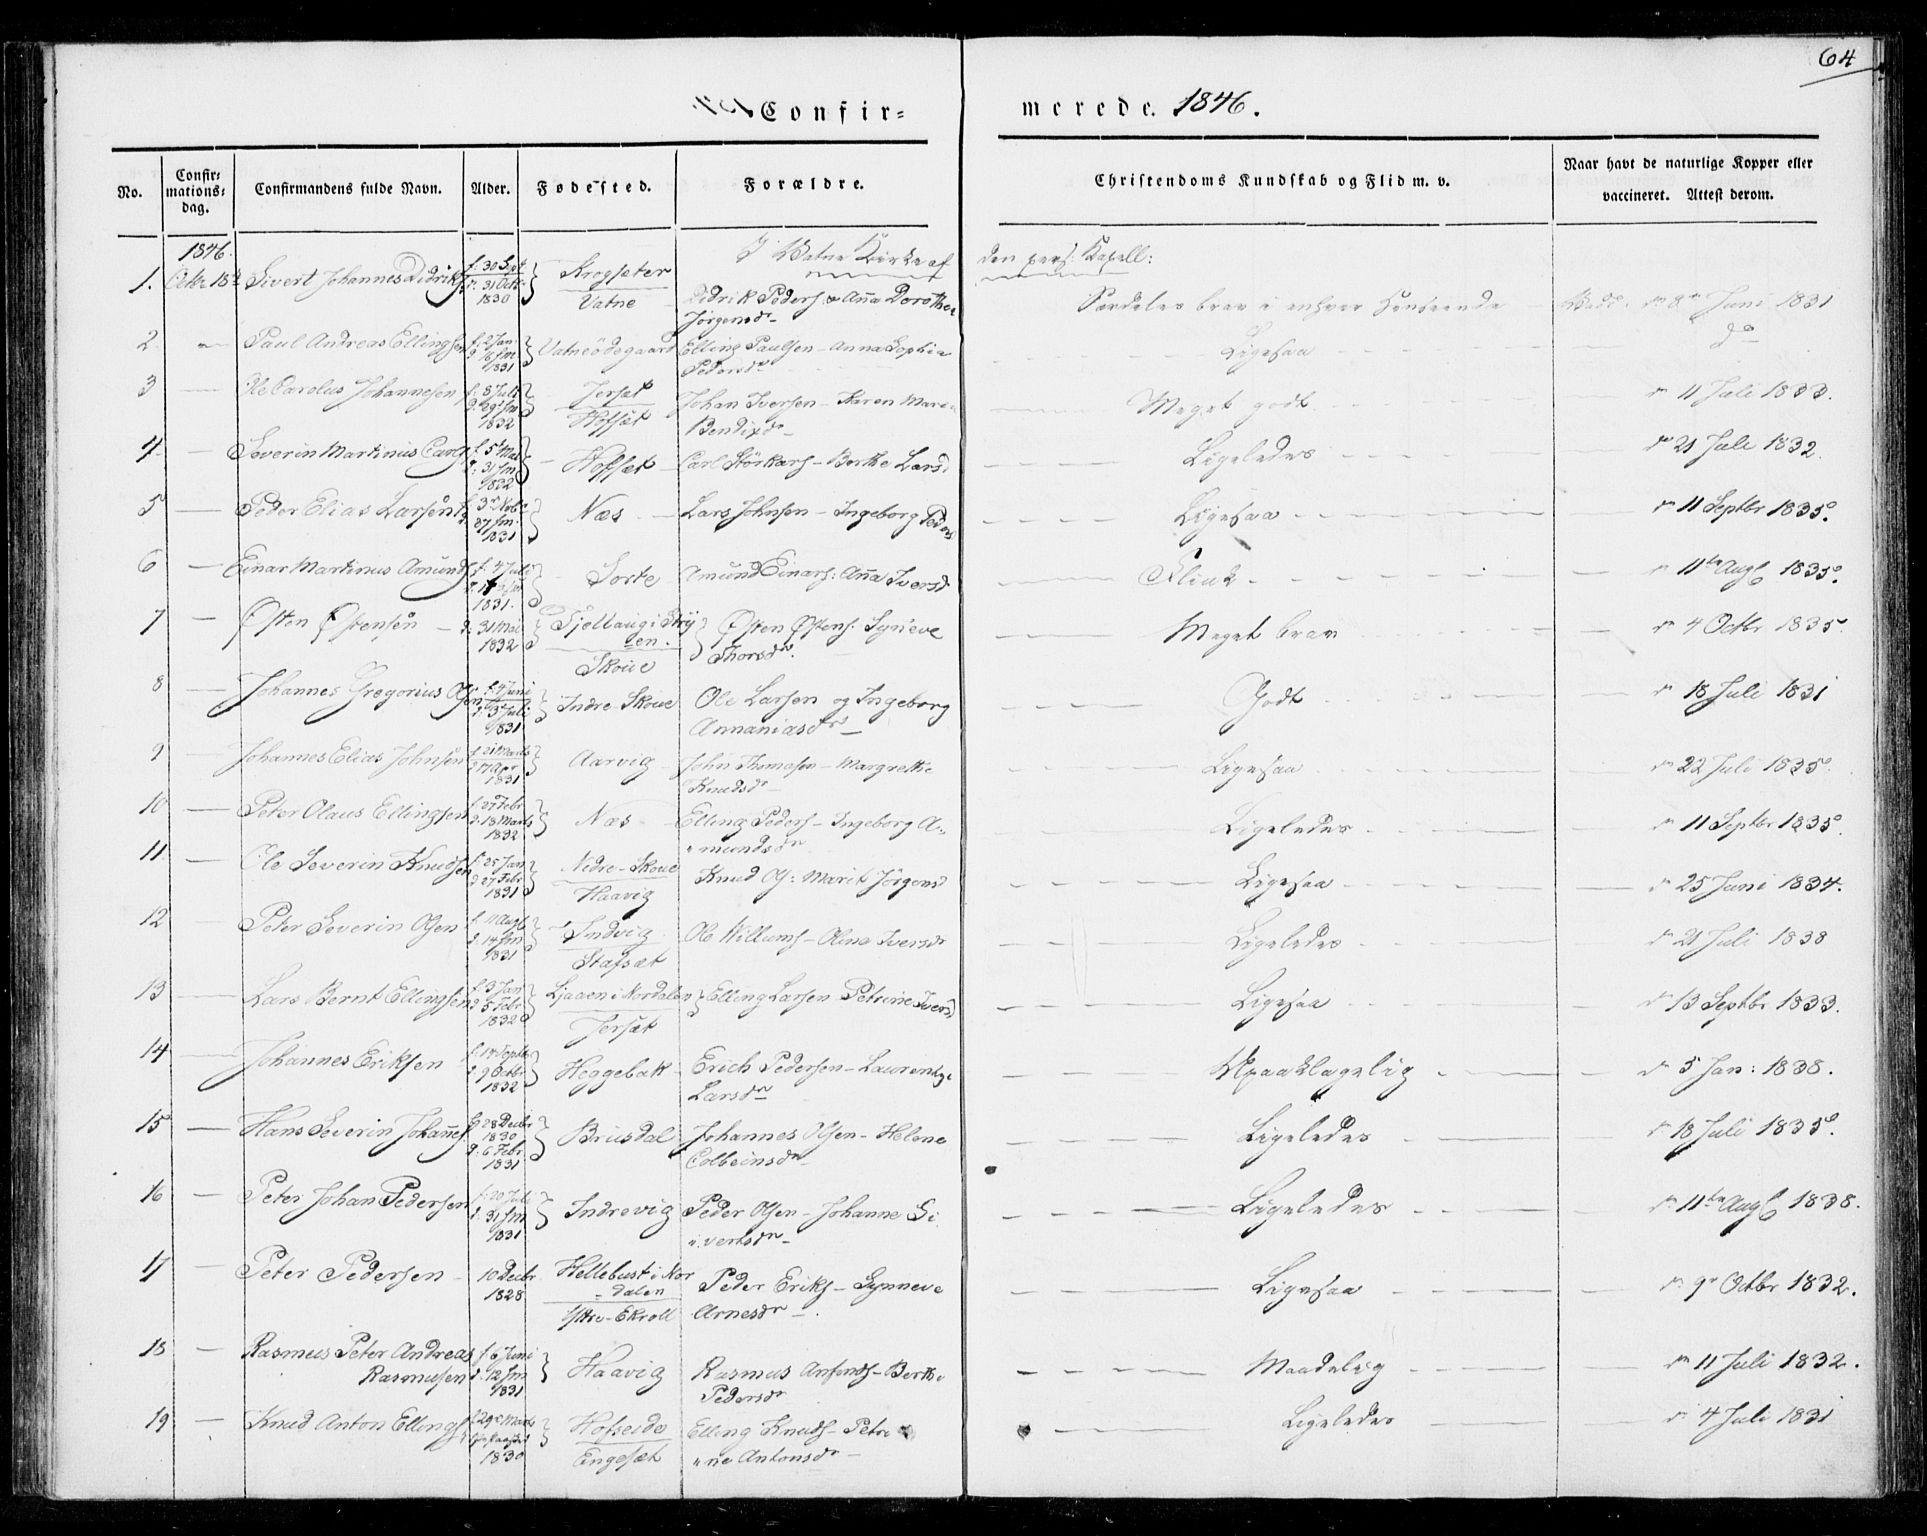 64
Confir= merede. 1846.
No. Confir= mations= dag. Confirmandens fulde Navn. Alder. Fødested. Forældre. Christendoms Kundskab og Flid m. v. Naar havt de naturlige Kopper eller vaccineret. Attest derom.
1846. I Vatne Kirke af den pers: Kapell:
1. Octbr 18de Sivert Johannes Didriks f: 30 Sept d: 31 Octb 1830 Krogsæter Vatne Didrik Peders & Anna Dorothea Jörgensdr Særdeles brav i enhver Henseende 8de Juni 1831
2 Paul Andreas Ellingsen f: 2 Jan d: 16 sm 1831 Vatneödegaard Elling Paulsen – Anna Sophia Pedersdr Ligesaa do
3 Ole Carolus Johannesen f: 8 Juli d: 29 sm 1832 Jersæt Hofsæt Johan Iversen – Karen Marie Bendixdr Meget godt 11 Juli 1833.
4 Severin Martinus Carls f: 5t Mai d: 31 sm 1832 Hofsæt Carl Störkars – Berthe Larsd Ligeledes 21 Juli 1832.
5 Peder Elias Larsen f: 3 Novbr d: 27 sm 1831 Næs Lars Johnsen – Ingeborg Peders Ligesaa 11 Septbr 1835.
6 Einar Martinus Amunds f: 4 Juli 1831. Sorte Amund Einars: Anna Iversd Flink 11te Augs 1835.
7 Østen Østensen d: 31 Mai 1832 Tjellaug i Stryen. Skoue Østen Østens: Synneve Thorsdr. Meget brav 4 Octbr 1835.
8 Johannes Gregorius Olsen f: 4 Juni d: 3 Juli 1831 Indre Skoue Ole Larsen og Ingeborg Annaniasdr Godt 18 Juli 1831
9 Johannes Elias Johnsen f: 21 Marts d: 17 Apr 1831 Aarvig John Thomasen – Margrethe Knudsdr Ligesaa 22 Juli 1835.
10 Peter Olaus Ellingsen f: 27 Febr d: 18 Marts 1832 Næs Elling Peders – Ingeborg Amundsdr Ligeledes 11 Septbr 1835.
11 Ole Severin Knudsen f: 25 Jan d: 27 Febr 1831 Nedre-Skoue Haavig Knud Ols: Marit Jörgensd Ligesaa 25 Juni 1834.
12 Peter Severin Olsen f: 11 Augs d: 14 sm 1831 Indvig Stafsæt Ole Willums – Olina Iversdr Ligeledes 21 Juli 1838
13 Lars Bernt Ellingsen f: 3 Jan d: 5 Febr 1832 Ljaaen i Nordalen Jersæt Elling Larsen Petrine Iversd Ligesaa 13 Septbr 1833.
14 Johannes Eriksen f: 14 Septbr d: 9 Octbr 1832 Heggebak Erich Pedersen – Laurentze Larsdr Upaaklagelig 5 Jan: 1838.
15 Hans Severin Johannes 28 Decbr 1830 d: 6 Febr 1831 Brusdal Johannes Olsen – Helene Colbeinsdr Ligeledes 18 Juli 1835.
16 Peter Johan Pedersen f: 20 Juli d: 31 sm 1831 Indrevig Peder Olsen – Johanne Sivertsdr Ligeledes 11te Augs 1838.
17 Peter Pedersen 10 Decbr 1828 Hellebust i Nordalen Ystre-Ekroll Peder Eriks – Synneve Arnesdr Ligesaa 9 Octbr 1832.
18 Rasmus Peter Andreas Rasmusen f 6 Juni d: 12 sm 1831 Haavig Rasmus – Berthe Pedersdr Maadelig 11 Juli 1832.
19 Knud Anton Ellings f 29 Marts 1830 Hofseide Engesæt Elling Knuds – Petrine Antonsdr Ligeledes 4 Juli 1831